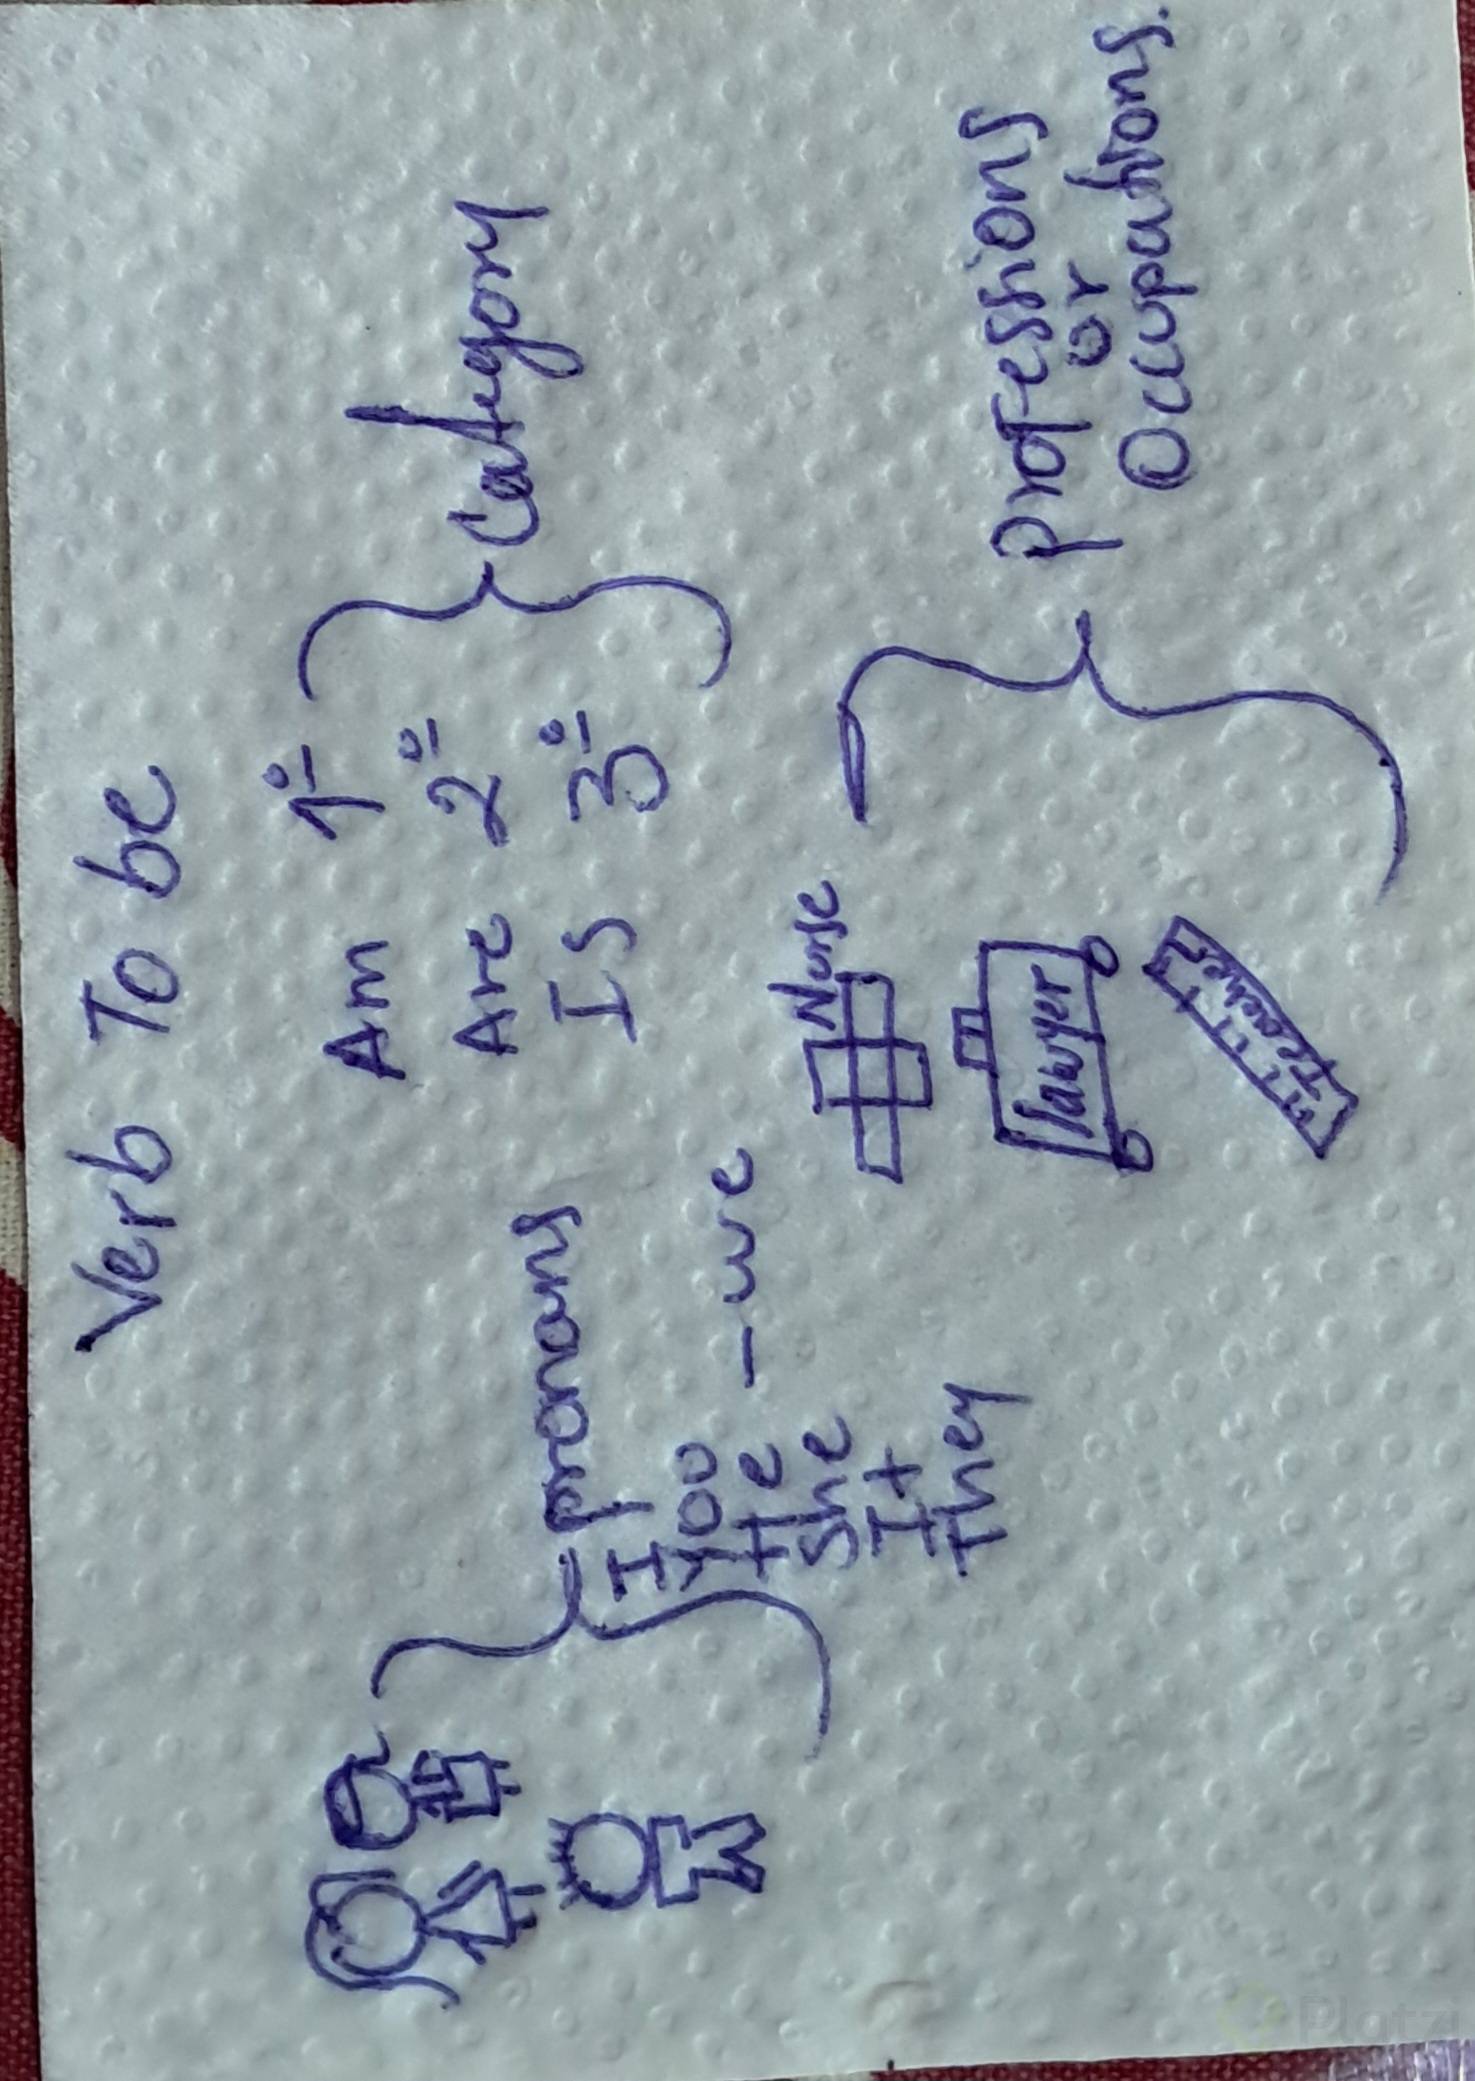 Verb To be
Am 1º
Are 2º
Is 3º
Category
pronouns
I
you
He - we
She
It
They
Nurse
lawyer
professions
or
Occupations.
Platzi